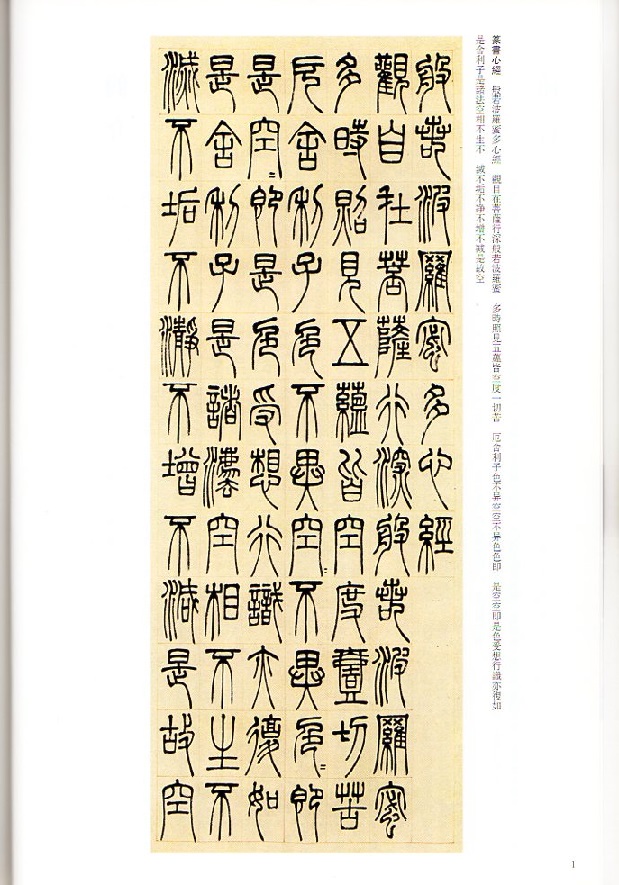 篆書心經　般若波羅蜜多心經　觀自在菩薩行深般若波羅蜜　多時照見五蘊皆空度一切苦　厄舍利子色不异空空不异色色即　是空空即是色受想行識亦復如
是舍利子是諸法空相不生不　滅不垢不淨不增不减是故空
般若波羅蜜多心經
觀自在菩薩行深般若波羅蜜
多時照見五蘊皆空度壹切苦
厄舍利子色不異空〻不異色〻即
是空〻即是色受想行識亦復如
是舍利子是諸法空相不生不
滅不垢不瀞不增不減是故空
1